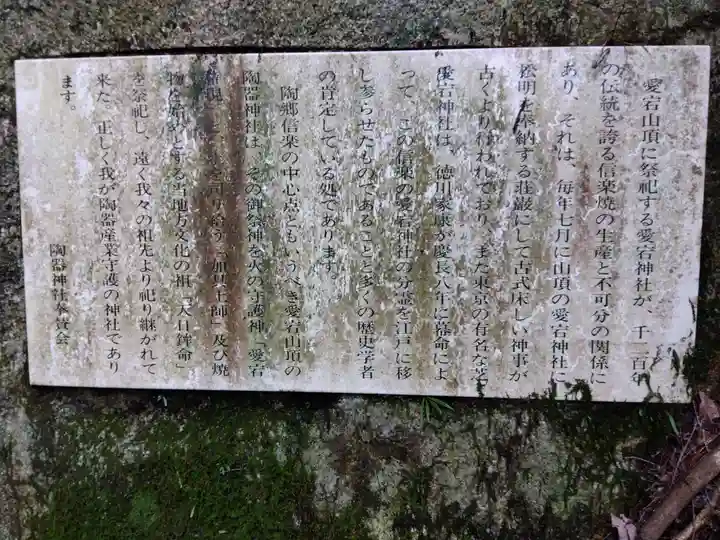 愛宕山頂に祭祀する愛宕神社が、千二百年
の伝統を誇る信楽焼の生産と不可分の関係に
あり、それは、毎年七月に山頂の愛宕神社に
松明を奉納する荘厳にして古式床しい神事が
古くより行われており、また東京の有名な芝
愛宕神社は、徳川家康が慶長八年に幕命によ
って、この信楽の愛宕神社の分霊を江戸に移
し参らせたものであることと多くの歴史学者
の肯定している処であります。
陶郷信楽の中心点ともいうべき愛宕山頂の
陶器神社は、その御祭神を火の守護神「愛宕
権現」と
を司り給う「加具土師」及び焼
物を始めとする当地方文化の祖「大日鉾命」
を祭祀し、遠く我々の祖先より祀り継がれて
来た、正しく我が陶器産業守護の神社であり
ます。
陶器神社奉賛会